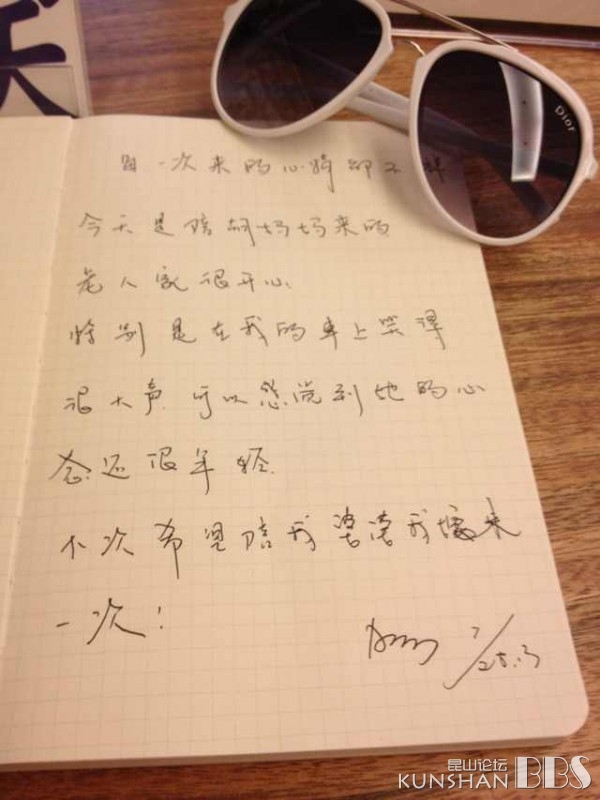 Dior
一次来的心情却不样
今天是陪胡妈妈来的
老人家很开心
特别是在我的车上笑得
很大声.可以感觉到她的心
态还很年轻.
下次希望陪我婆婆我来
一次!
昆山论坛
KUNSHAN BBS